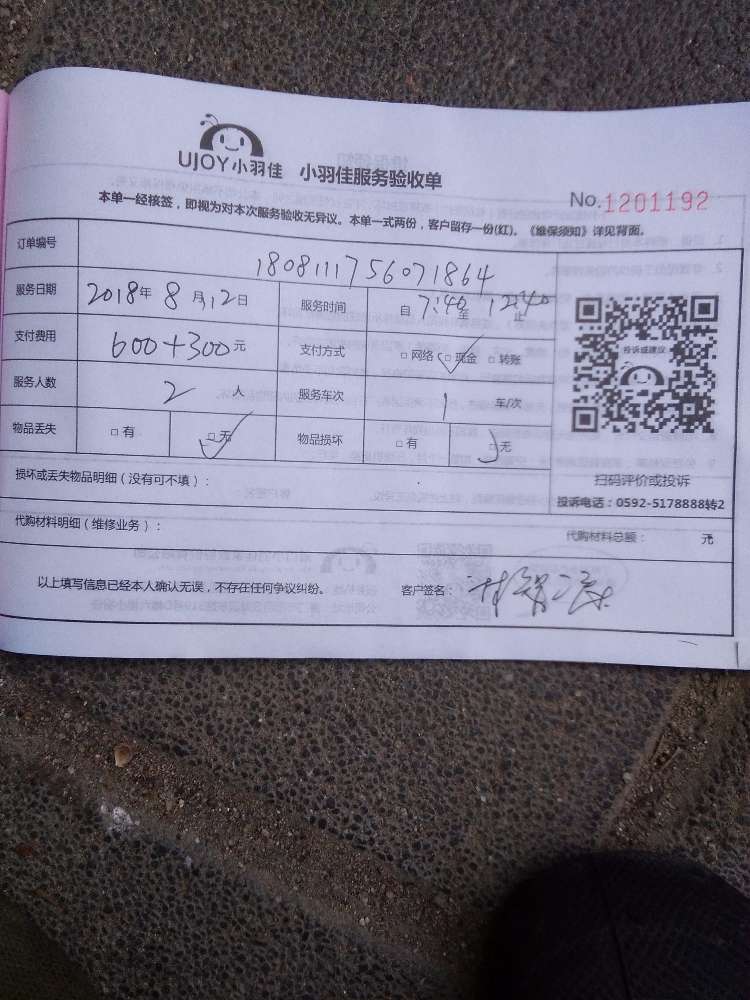 UJOY小羽佳 小羽佳服务验收单
No.1201192
本单一经核签，即视为对本次服务验收无异议。本单一式两份，客户留存一份(红)。《维保须知》详见背面。
订单编号 1808111756071864
服务日期 2018年 8月12日 服务时间 自 7:40 至 12:40 止
支付费用 600+300元 支付方式 □网络 □现金 □转账
服务人数 2 人 服务车次 1 车/次
物品丢失 □有 □无 物品损坏 □有 □无
投诉或建议
扫码评价或投诉
投诉电话：0592-5178888转2
损坏或丢失物品明细（没有可不填）：
代购材料明细（维修业务）： 代购材料总额： 元
以上填写信息已经本人确认无误，不存在任何争议纠纷。 客户签名：